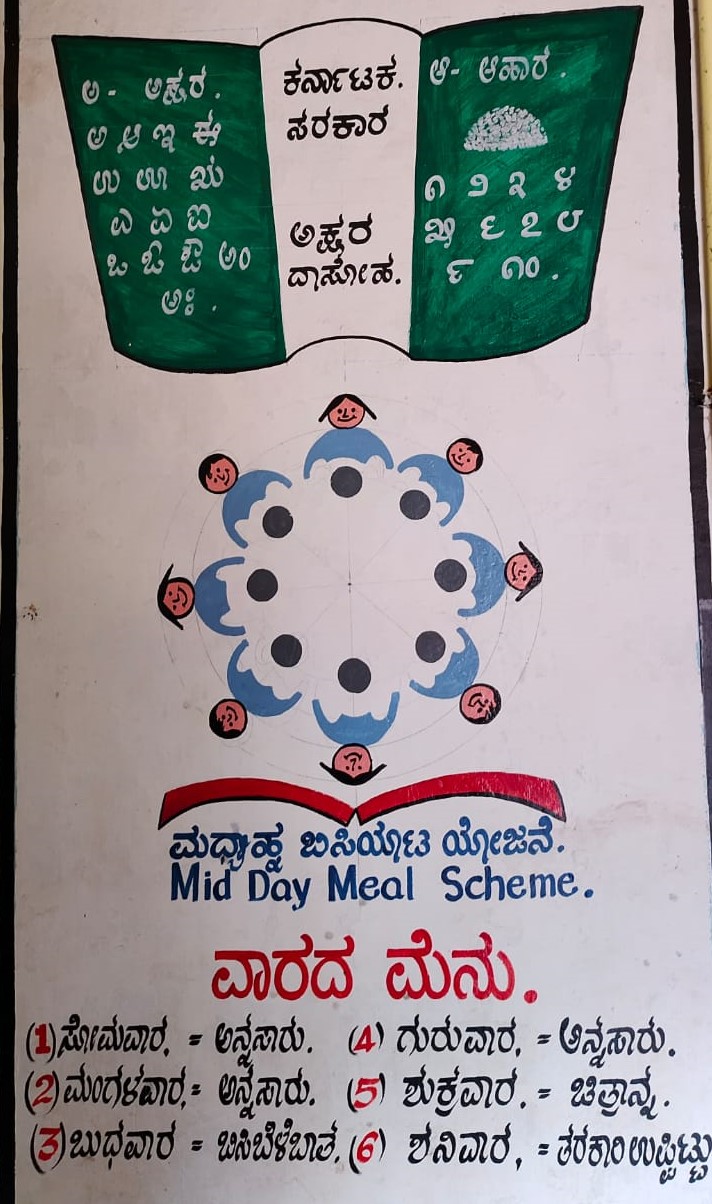 ಅ - ಅಕ್ಷರ .
ಅ ಆ ಇ ಈ
ಉ ಊ ಋ
ಎ ಏ ಐ
ಒ ಓ ಔ ಅಂ
ಅಃ .
ಕರ್ನಾಟಕ.
ಸರಕಾರ
ಅಕ್ಷರ
ದಾಸೋಹ.
ಆ- ಆಹಾರ .
೧ ೨ ೩ ೪
೫ ೬ ೭ ೮
೯ ೧೦ .
ಮಧ್ಯಾಹ್ನ ಬಿಸಿಯೂಟ ಯೋಜನೆ.
Mid Day Meal Scheme.
ವಾರದ ಮೆನು.
(1) ಸೋಮವಾರ, = ಅನ್ನಸಾರು. (4) ಗುರುವಾರ, = ಅನ್ನಸಾರು.
(2) ಮಂಗಳವಾರ, = ಅನ್ನಸಾರು. (5) ಶುಕ್ರವಾರ. = ಚಿತ್ರಾನ್ನ.
(3) ಬುಧವಾರ = ಬಿಸಿಬೆಳೆಬಾತ. (6) ಶನಿವಾರ, = ತರಕಾರಿ ಉಪ್ಪಿಟ್ಟು